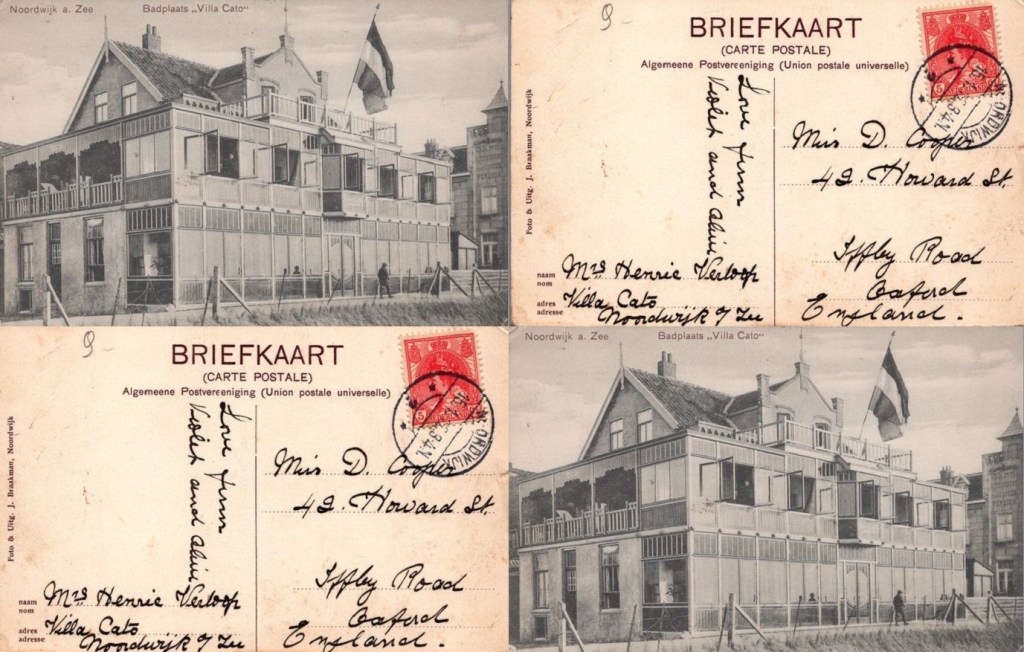 Noordwijk a. Zee Badplaats „Villa Cato“
BRIEFKAART
(CARTE POSTALE)
Algemeene Postvereeniging (Union postale universelle)
Foto & Uitg. J. Braakman, Noordwijk
Love from
Violet and
Miss D. Cooper
42. Howard St.
Iffley Road
Oxford
England.
naam
nom
Mrs Henrie Verloop
adres
adresse
Villa Cato
Noordwijk a/ Zee
NOORDWIJK
BRIEFKAART
(CARTE POSTALE)
Algemeene Postvereeniging (Union postale universelle)
Foto & Uitg. J. Braakman, Noordwijk
Love from
Violet and
Miss D. Cooper
42. Howard St.
Iffley Road
Oxford
England.
naam
nom
Mrs Henrie Verloop
adres
adresse
Villa Cato
Noordwijk a/ Zee
NOORDWIJK
Noordwijk a. Zee Badplaats „Villa Cato“